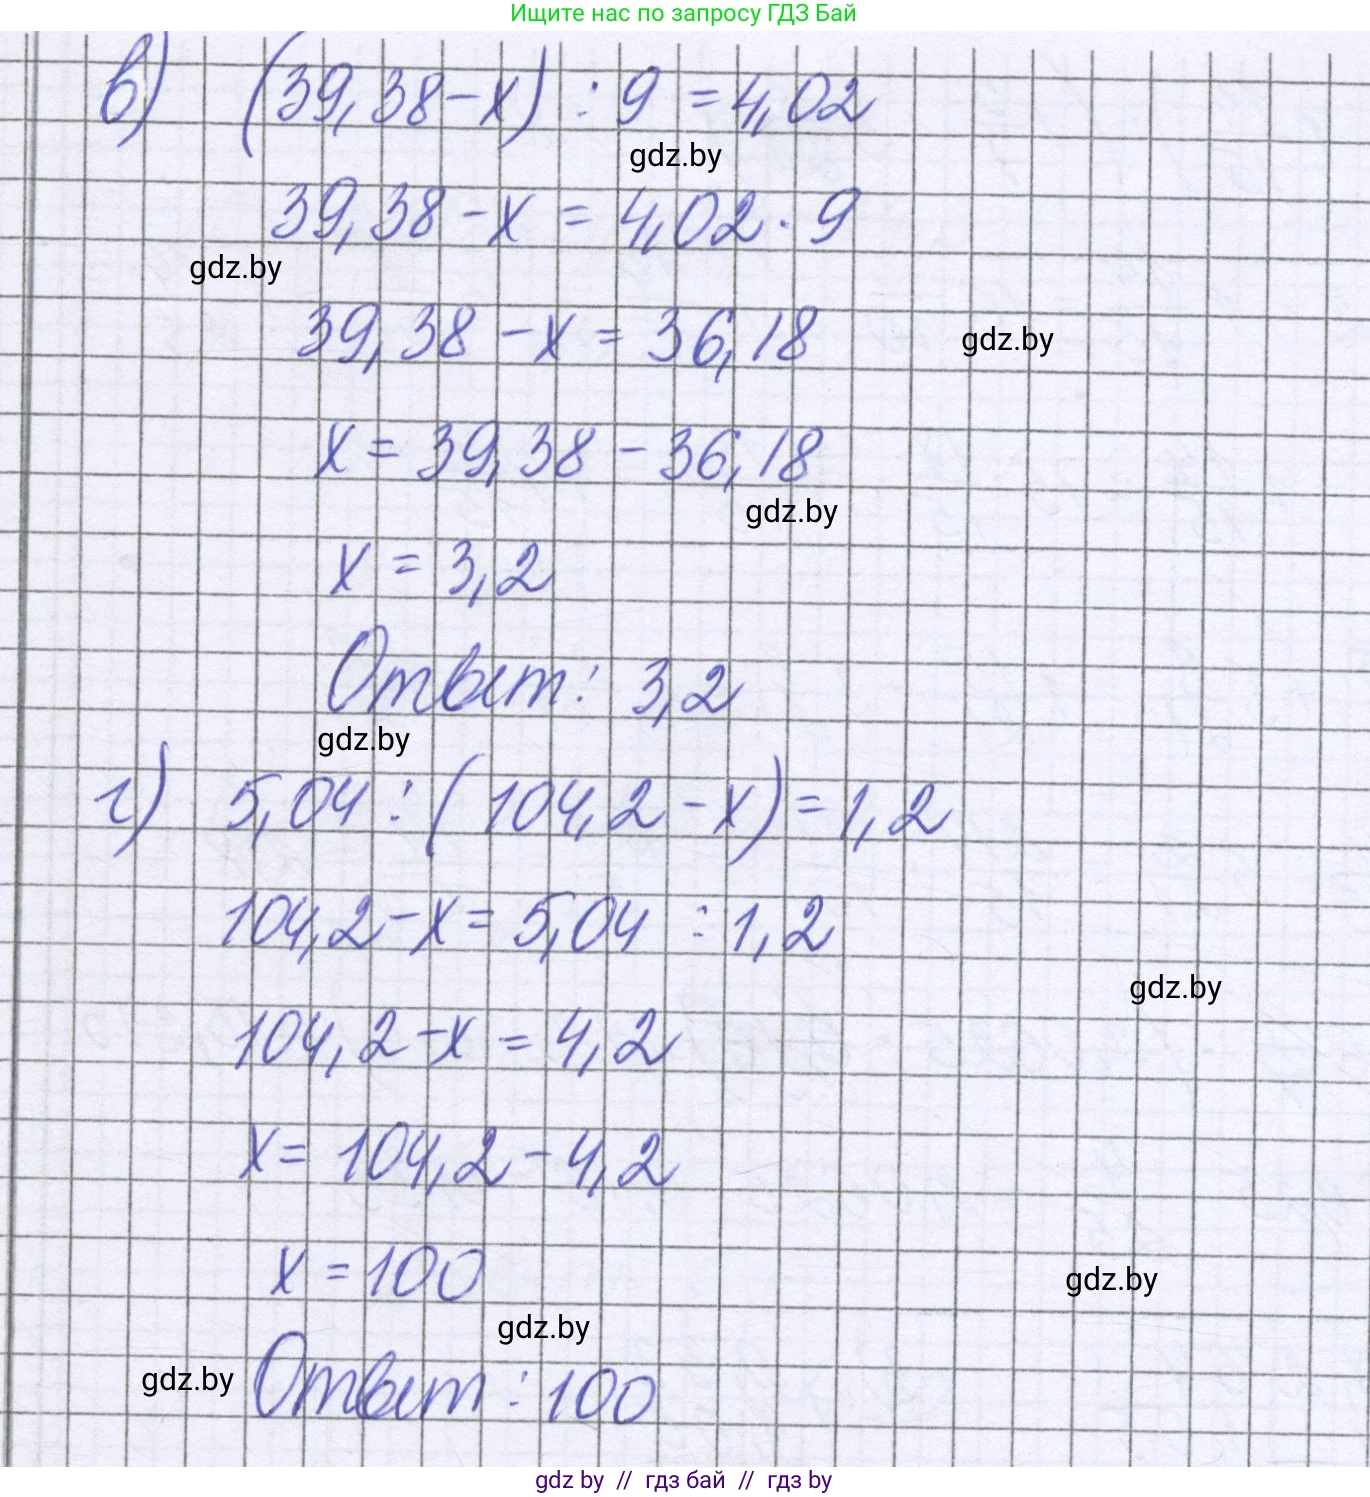 Ищите нас по запросу ГДЗ Бай
в) (39,38 - x) : 9 = 4,02
gdz.by
39,38 - x = 4,02 · 9
gdz.by
39,38 - x = 36,18
gdz.by
x = 39,38 - 36,18
gdz.by
x = 3,2
Ответ: 3,2
gdz.by
г) 5,04 : (104,2 - x) = 1,2
104,2 - x = 5,04 : 1,2
gdz.by
104,2 - x = 4,2
x = 104,2 - 4,2
x = 100
gdz.by
gdz.by
gdz.by
Ответ: 100
gdz by // гдз бай // гдз by